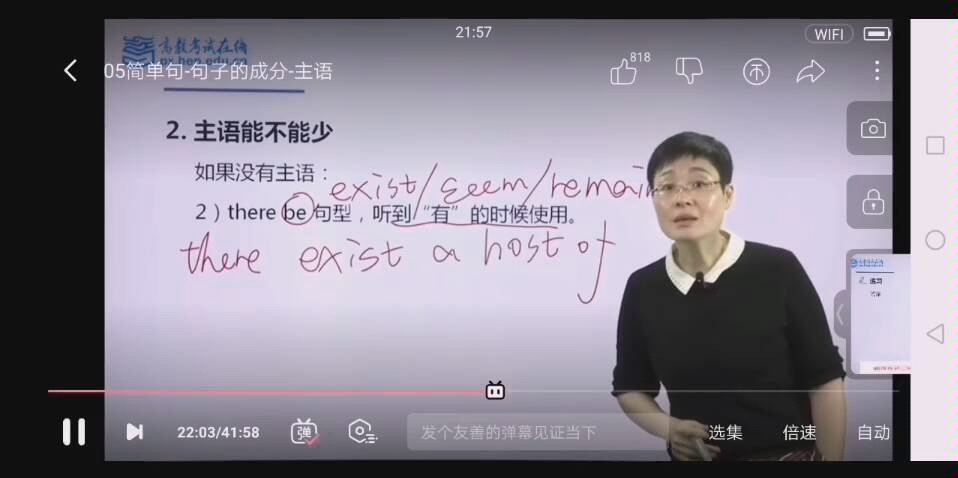 21:57
WIFI
高教考试在线
px.hep.edu.cn
05简单句-句子的成分-主语
818
2. 主语能不能少
如果没有主语：
exist/seem/remain
2）there be 句型，听到“有”的时候使用。
there exist a host of
22:03/41:58
弹
发个友善的弹幕见证当下
选集
倍速
自动